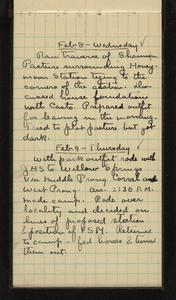 Feb-8-Wednesday √
Ran traverse of Stump
Pasture surrounding Honey-
moon Station tying to the
corners of the station. Dis-
cussed house foundations
with Casto. Prepared outfit
for leaving in the morning.
Tried to plot pasture but got
dark.
Feb-9-Thursday √
With pack outfit rode with
JHS to Willow Springs
via Middle Prong Corral and
West Prong. Arr. 2:30 P.M.
made camp. Rode over
locality and decided on
lines of proposed station
& position of P.S.M. Returned
to camp - fed horses & turned
them out.